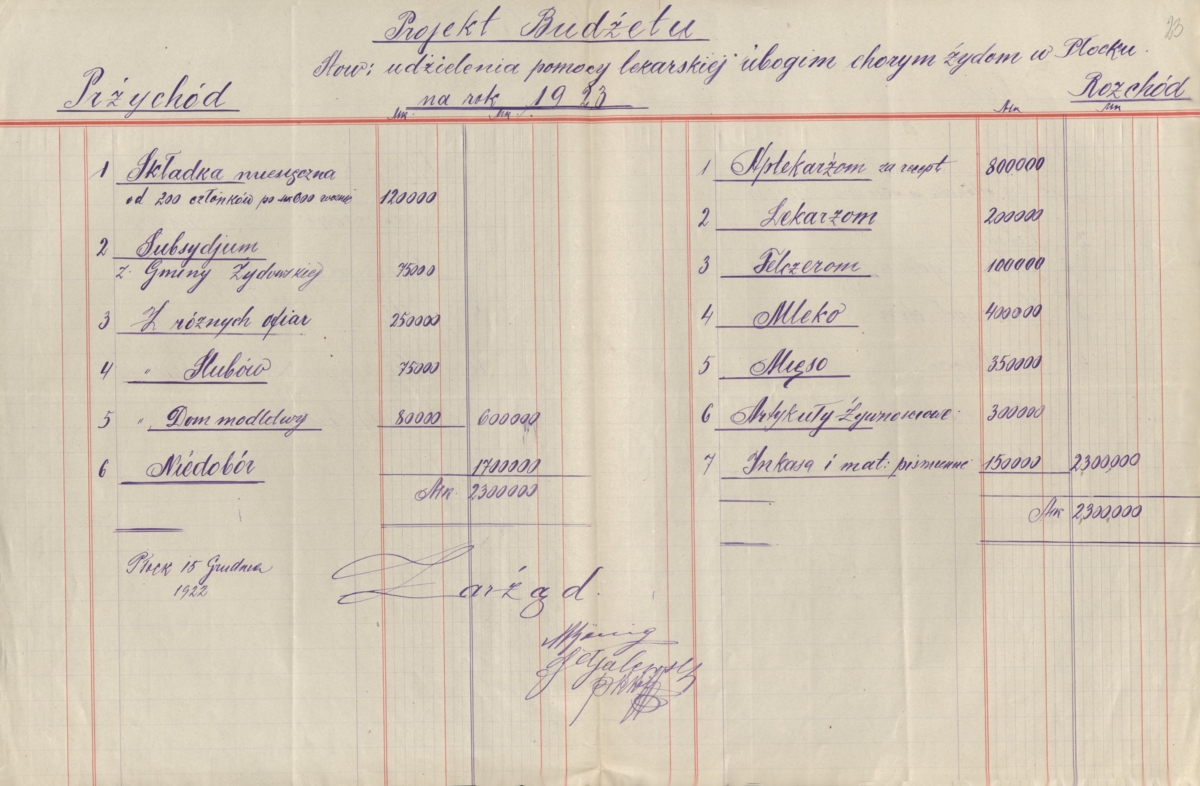 23
Projekt Budżetu
Stow: udzielenia pomocy lekarskiej ubogim chorym żydom w Płocku.
na rok 1923
Przychód
Mk. Mk.
1 Składka miesięczna
od 200 członków po mk 600 rocznie 120000
2 Subsydjum
z Gminy Żydowskiej 75000
3 Z różnych ofiar 250000
4 " Ślubów 75000
5 " Dom modletwy 80000 600000
6 Niedobór 1700000
Mk 2300000
Rozchód
Mk Mk
1 Aptekarżom za recept 800000
2 Lekarzom 200000
3 Felczerom 100000
4 Mleko 400000
5 Mięso 350000
6 Artykuły Żywnosciowe 300000
7 Inkasa i mat: piśmienne 150000 2,300,000
Mk 2,300,000
Płock 15 Grudnia
1922
Zarżąd.